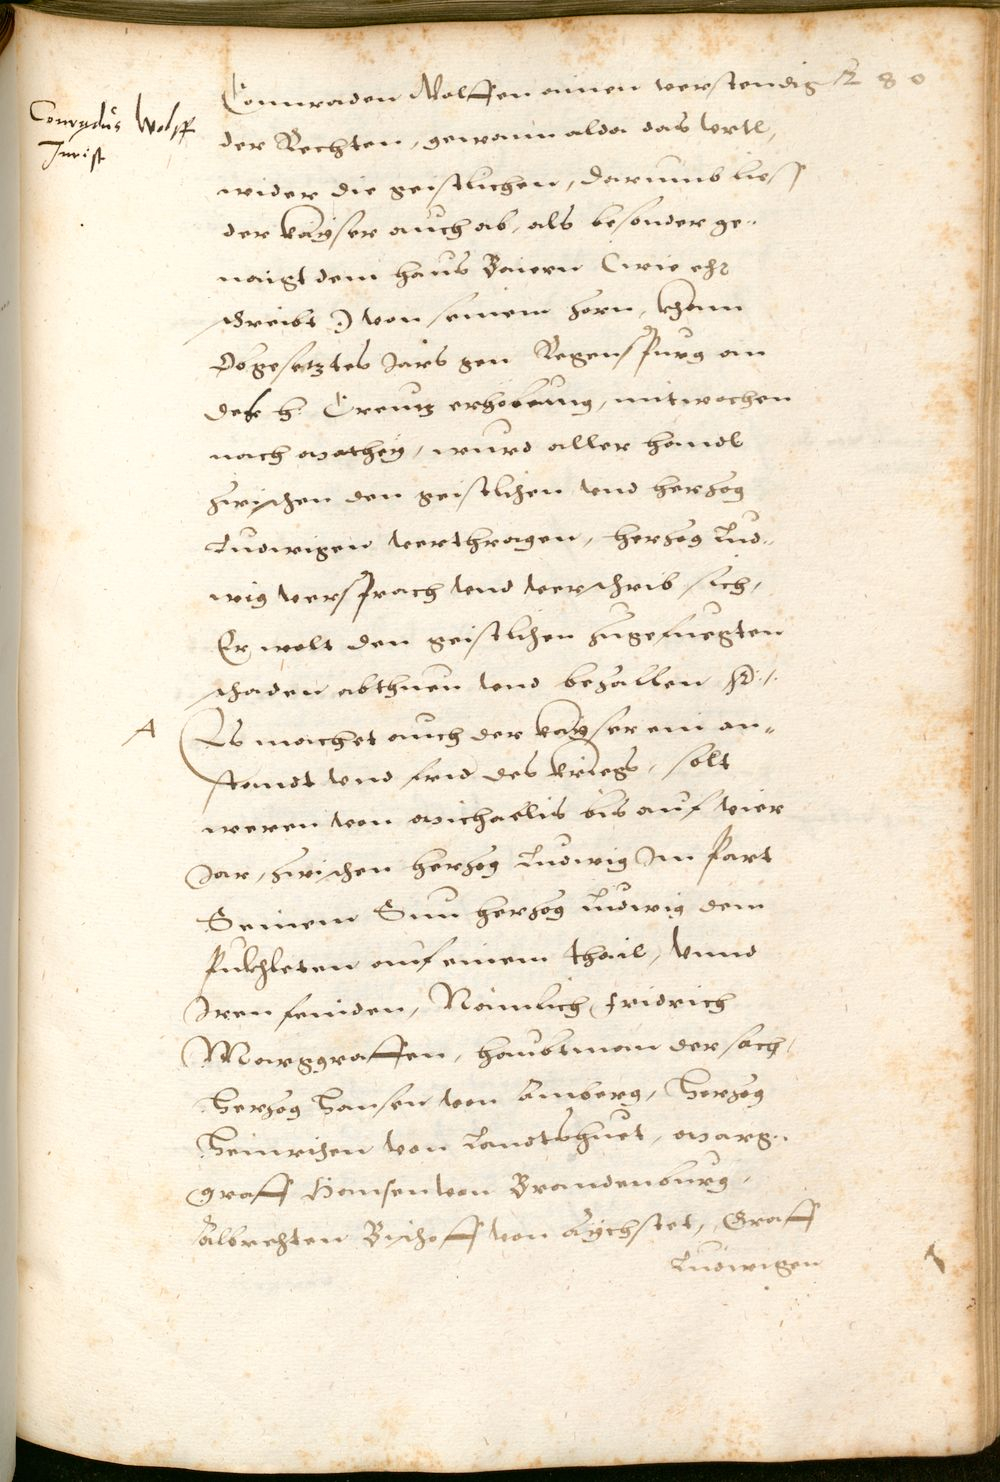 Connraden Wolffen ainen verstendig 80
Conradus Wolff
Jurist
der Rechten, gewann alda das Urtl,
wider die geistlichen, darumb liess
der kayser auch ab, als besonder ge-
naigt dem haus Baiern (wie ehr
schreibt) von seinem hern, kham
Obgesetztes Jars gen Regenspurg an
dess h. Creutz erhebung, mitwochen
nach Mathey, wurd aller handl
zwischen den geistlichen und herzog
Ludwigen verthragen, herzog Lud-
wig versprach und verschrib sich,
Er wolt den geistlichen zugefuegten
schaden abthuen und bezallen
A
Es machet auch der kayser ein an-
standt und frid des kriegs, solt
weren von Michaelis bis auf vier
Jar, zwischen herzog Ludwig Im Part
Seinem Sun herzog Ludwig dem
Pukhleten auf einem thail, Unnd
Iren feinden, Nämlich Fridrich
Marggraffen, haubtman der sach,
Herzog Hansen von Amberg, Herzog
Heinrichen von Landtshuet, Marg-
graff Hansen von Brandenburg,
Albrechten Bischoff von Aychstet, Graff
Ludwigen